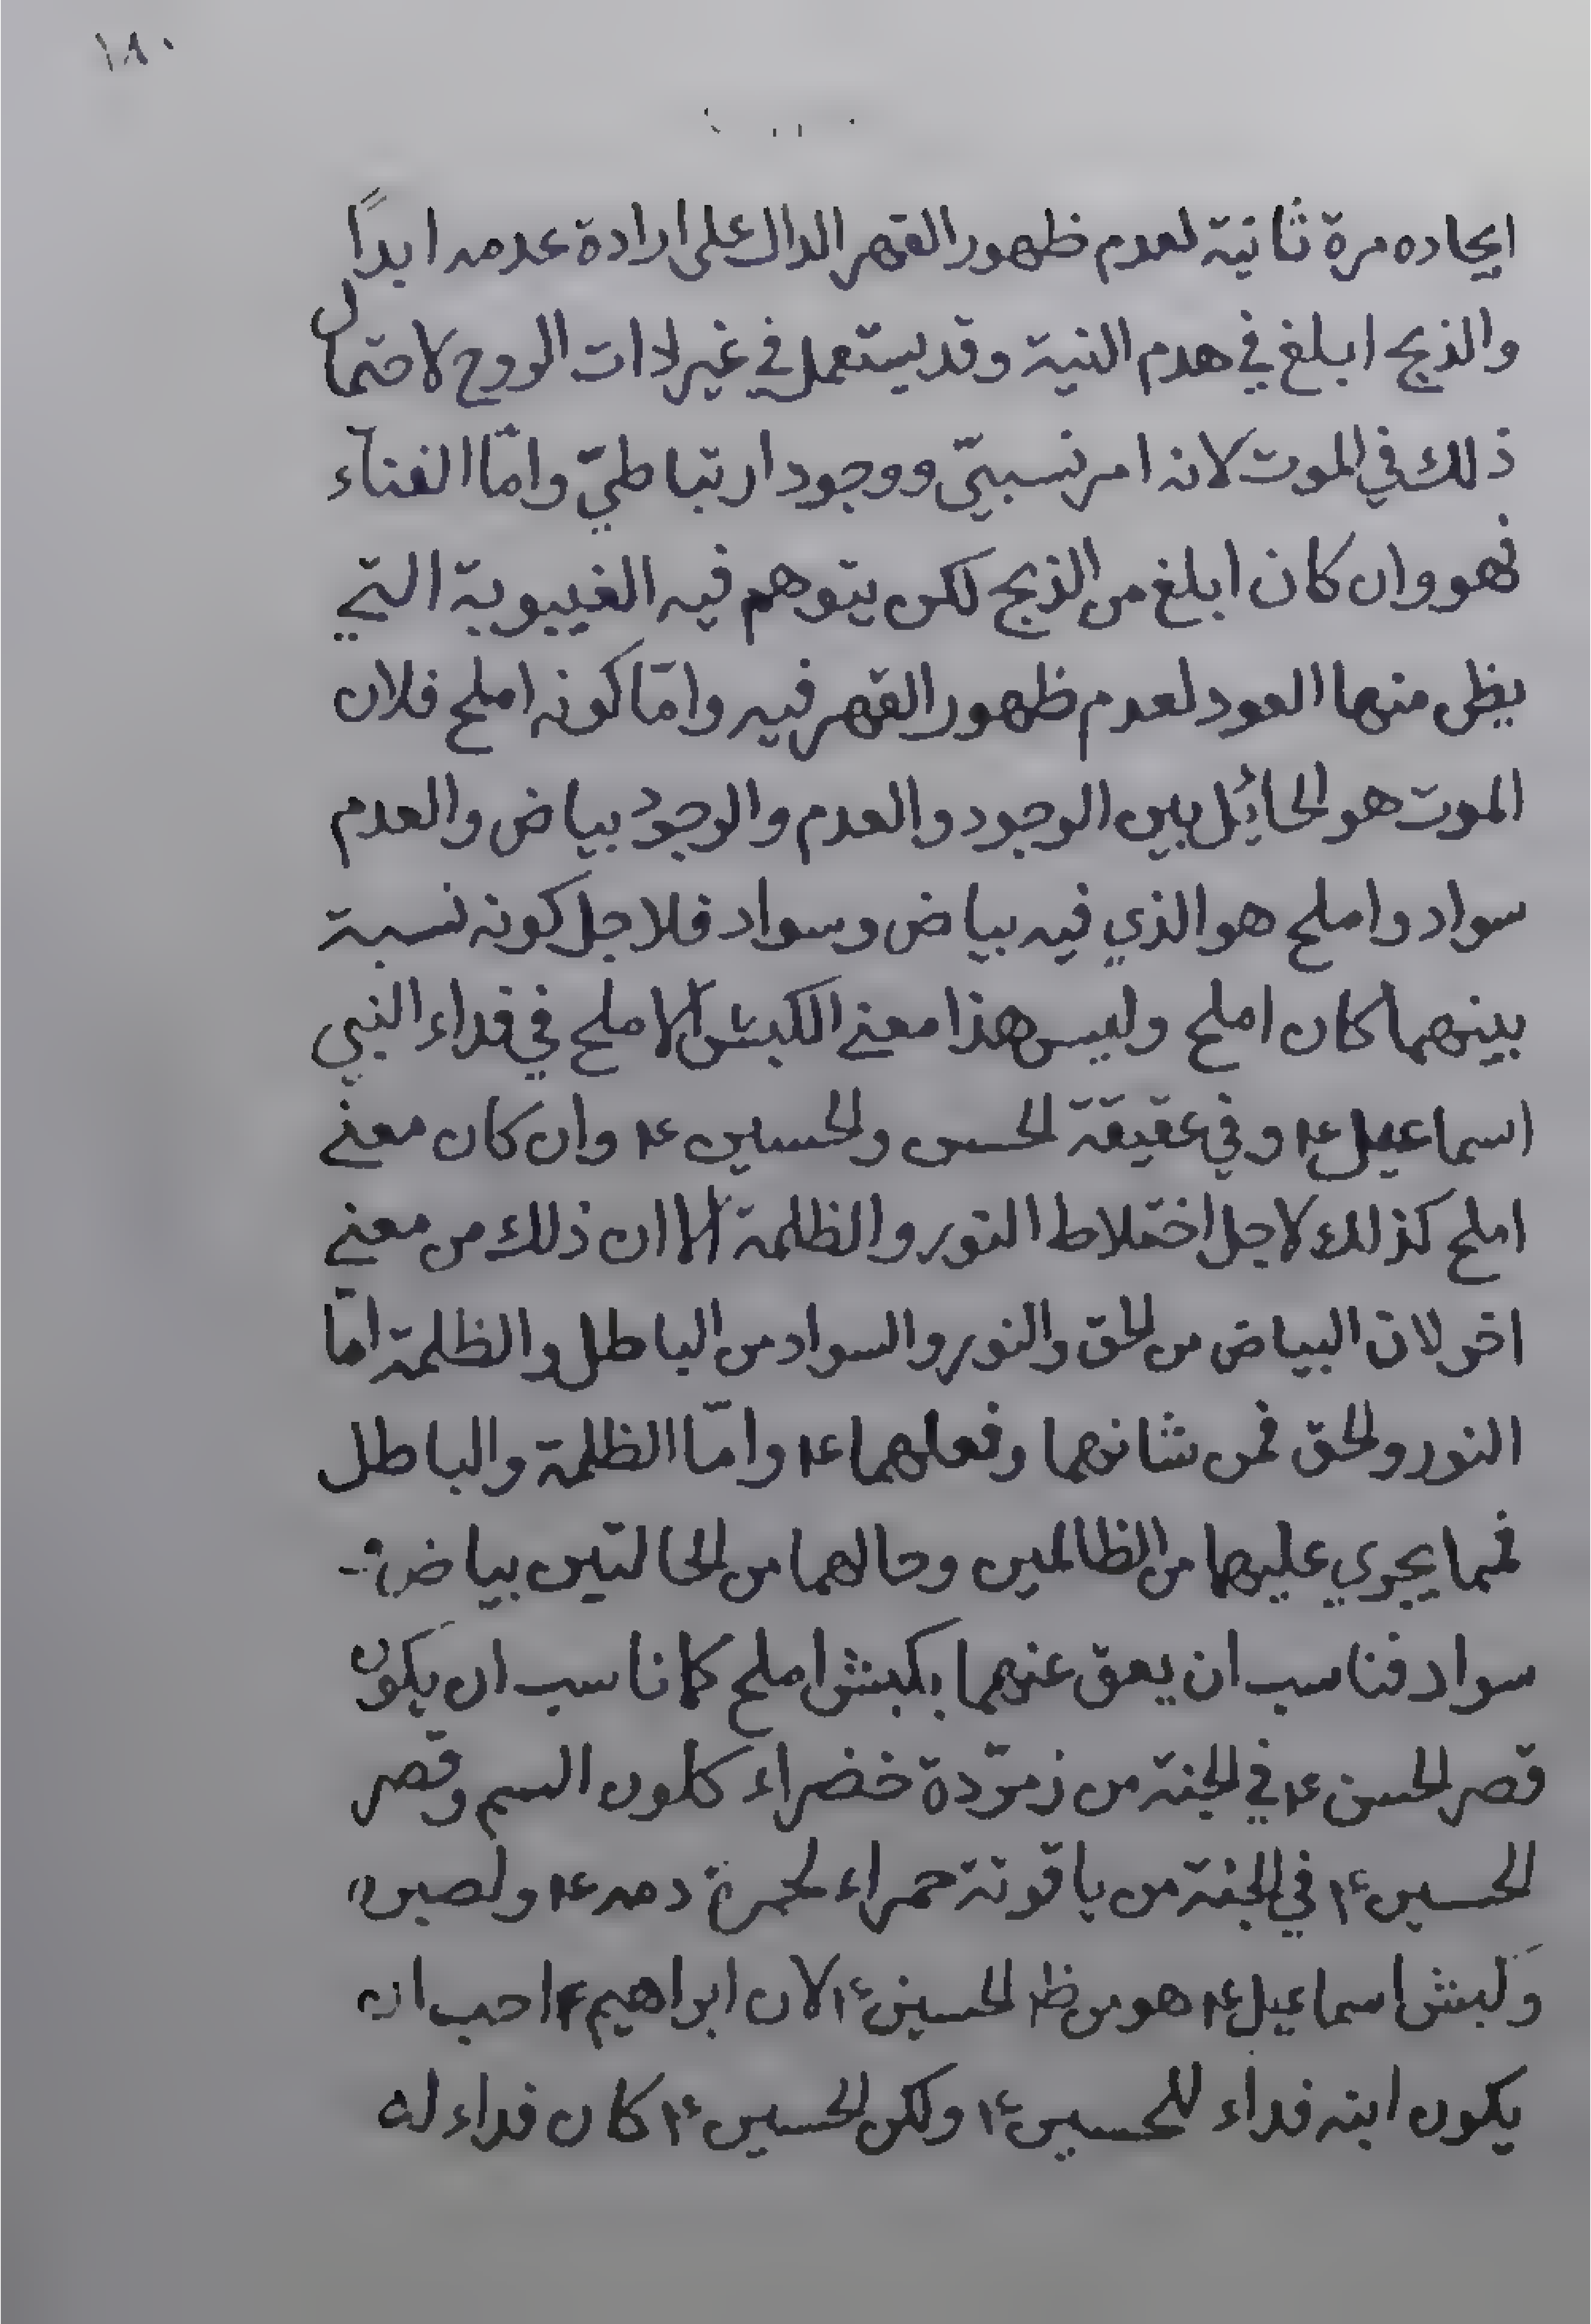 ١٨٠
ايجاده مرة ثانية لعدم ظهور القهر الدال على ارادة عدمه ابداً
والذبح ابلغ في هدم النية وقد يستعمل في غير ذات الروح لاحتمال
ذلك في الموت لانه امر نسبيّ ووجود ارتباطيّ وامّا الفنآء
فهو وان كان ابلغ من الذبح لكن يتوهم فيه الغيبوبة التي
يظن منها العود لعدم ظهور القهر فيه وامّا كونه املح فلان
الموت هو الحائل بين الوجود والعدم والوجود بياض والعدم
سواد واملح هو الذي فيه بياض وسواد فلاجل كونه نسبة
بينهما كان املح وليس هذا معنى الكبش الاملح في فداء النبي
اسماعيل ع١ وفي عقيقة الحسن والحسين ع١ وان كان معنى
املح كذلك لاجل اختلاط النور والظلمة الا ان ذلك من معنى
اخر لان البياض من الحق والنور والسواد من الباطل والظلمة امّا
النور والحق فمن شانهما وفعلهما ع١ وامّا الظلمة والباطل
فمما يجري عليهما من الظالمين وحالهما من الحالتين بياض و
سواد فناسب ان يعق عنهما بكبش املح كما ناسب ان يكون
قصر الحسن ع١ في الجنة من زمرّدة خضراء كلون السم وقصر
الحسين ع١ في الجنة من ياقوتة حمراء لحمرة دمه ع١
وكبش اسماعيل ع١ هو من الحسين ع١ لان ابراهيم ع١ احب ان
يكون ابنه فداء للحسين ع١ ولكن الحسين ع١ كان فداء له